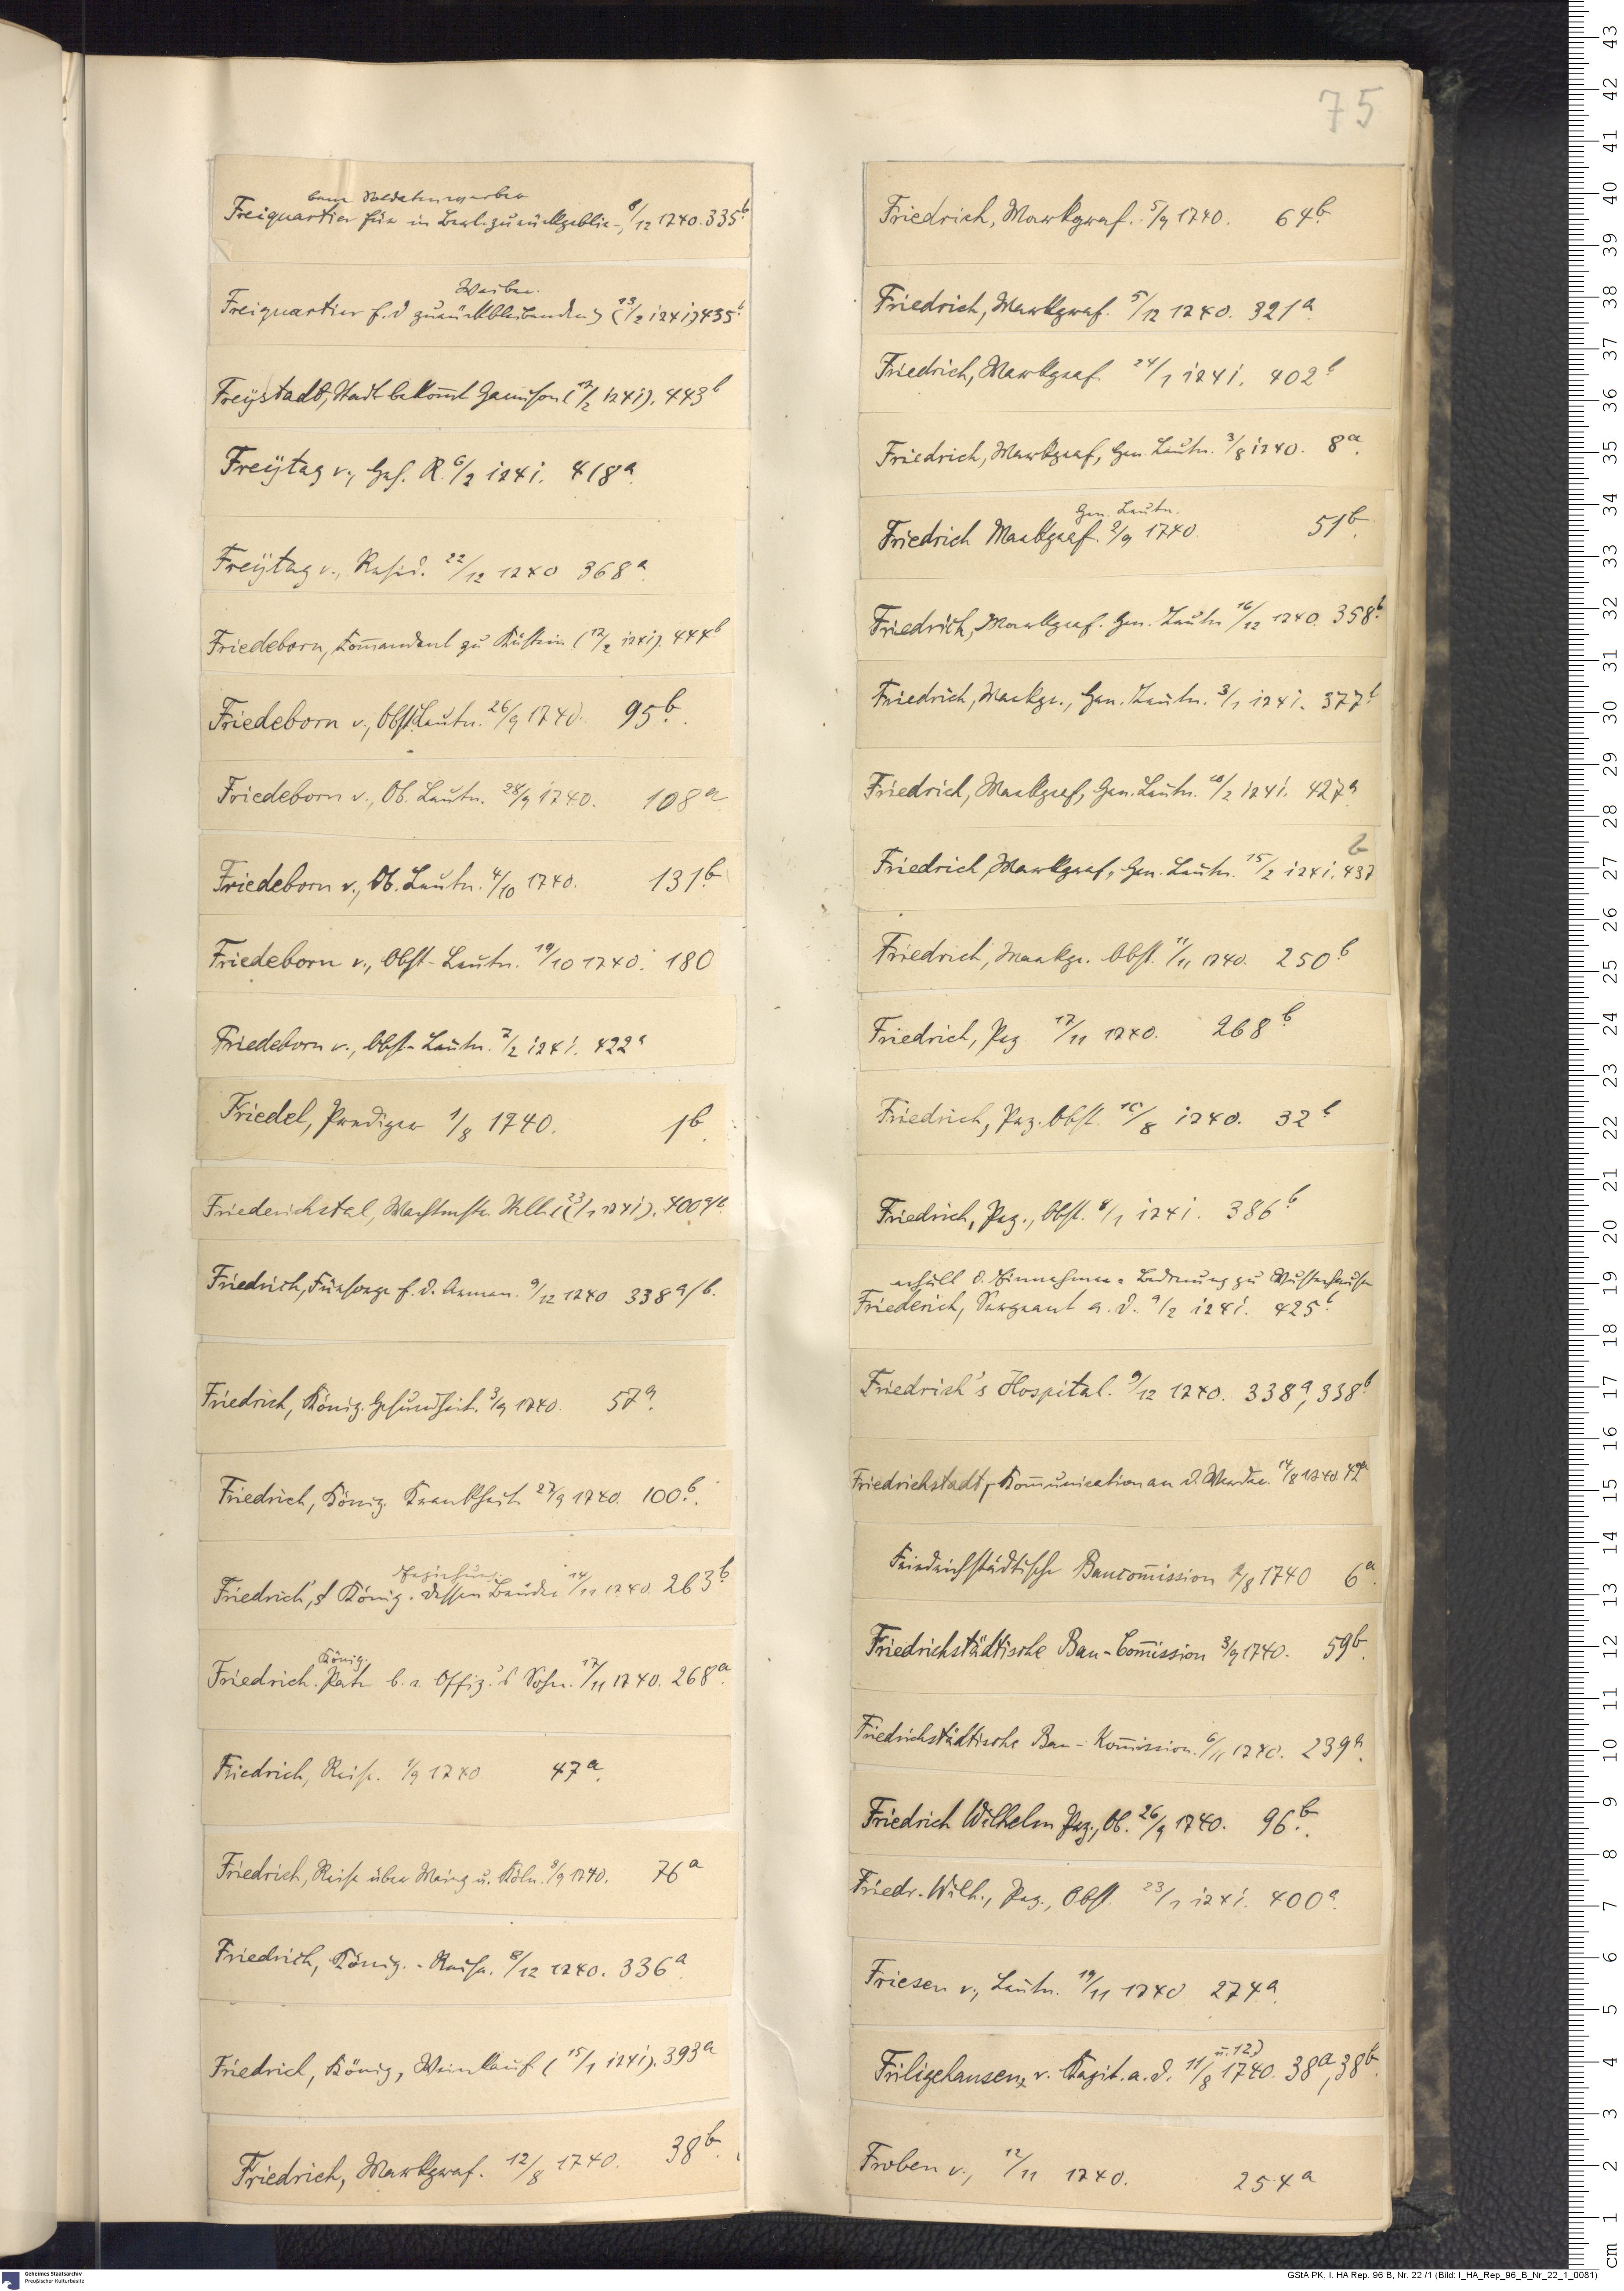 75
bene Soldatenweiber
Freiquartier für in Berl. zurückgeblie-, 8/12 1740. 335b.
Weiber.
Freiquartier f. d zurückbleibenden (13/2 1741) 435b.
Freystadt, Stadt bekomt Garnison (12/2 1741). 443b
Freÿtag v., Geh. R. 6/2 1741. 418a.
Freÿtag v., Resid. 22/12 1740 368a.
Friedeborn, Komandant zu Küstrin (17/2 1741). 444b
Friedeborn v., Obst. Leutn. 26/9 1740. 95b.
Friedeborn v., Ob. Leutn. 28/9 1740. 108a
Friedeborn v., Ob. Leutn. 4/10 1740. 131b.
Friedeborn v., Obst-Leutn. 19/10 1740. 180
Friedeborn v., Obst-Leutn. 7/2 1741. 422a
Friedel, Prediger 1/8 1740. 1b.
Friederichstal, Wachtmstr. Stelle (23/1 1741). 400a/b.
Friedrich, Fürsorge f. d. Armen. 9/12 1740 338a/b.
Friedrich, König. Gesundheit. 3/9 1740. 57a.
Friedrich, König. Krankheit 27/9 1740. 100b.
Erziehung.
Friedrich's König. dessen Brüder 14/11 1740. 263b.
König.
Friedrich. Pate b. e. Offiz.'s Sohn. 17/11 1740. 268a.
Friedrich, Reise. 1/9 1740 47a.
Friedrich, Reise über Mainz u. Köln. 8/9 1740. 76a
Friedrich, König. - Reise. 8/12 1740. 336a.
Friedrich, König, Weinkauf (15/1 1741). 393a
Friedrich, Markgraf. 12/8 1740. 38b.
Friedrich, Markgraf. 5/9 1740. 64b.
Friedrich, Markgraf. 5/12 1740. 321a.
Friedrich, Markgraf 24/1 1741. 402b
Friedrich, Markgraf, Gen. Leutn. 3/8 1740. 8a.
Gen. Leutn.
Friedrich Markgraf. 2/9 1740 51b.
Friedrich, Markgraf. Gen. Leutn 16/12 1740. 358b.
Friedrich, Markgr., Gen. Leutn. 3/1 1741. 377b
Friedrich, Markgraf, Gen. Leutn. 10/2 1741. 427a
b
Friedrich, Markgraf, Gen. Leutn. 15/2 1741. 437
Friedrich, Markgr. Obst. 11/11 1740. 250b
Friedrich, Prz 17/11 1740. 268b
Friedrich, Prz. Obst. 10/8 1740. 32b
Friedrich, Prz., Obst. 8/1 1741. 386b
erhält d. Einnehmer-Bedienung zu Wusterhausen
Friederich, Sergeant a. D. 9/2 1741. 425b.
Friedrich's Hospital. 9/12 1740. 338a, 338b
Friedrichstadt, Komunication an d. Werder. 14/8 1740. 42a
Friedrichstädtische Baucomission 2/8 1740 6a.
Friedrichstädtische Bau-Comission 3/9 1740. 59b.
Friedrichstädtische Bau-Komission. 6/11 1740. 239a.
Friedrich Wilhelm Prz., Ob. 26/9 1740. 96b.
Friedr. Wilh., Prz., Obst. 23/1 1741. 400a.
Friesen v., Leutn. 19/11 1740 274a.
u. 12)
Friligehausen, v. Kapit. a. D. 11/8 1740. 38a, 38b.
Froben v., 12/11 1740. 254a
Geheimes Staatsarchiv
Preußischer Kulturbesitz
GStA PK, I. HA Rep. 96 B, Nr. 22 /1 (Bild: I_HA_Rep_96_B_Nr_22_1_0081)